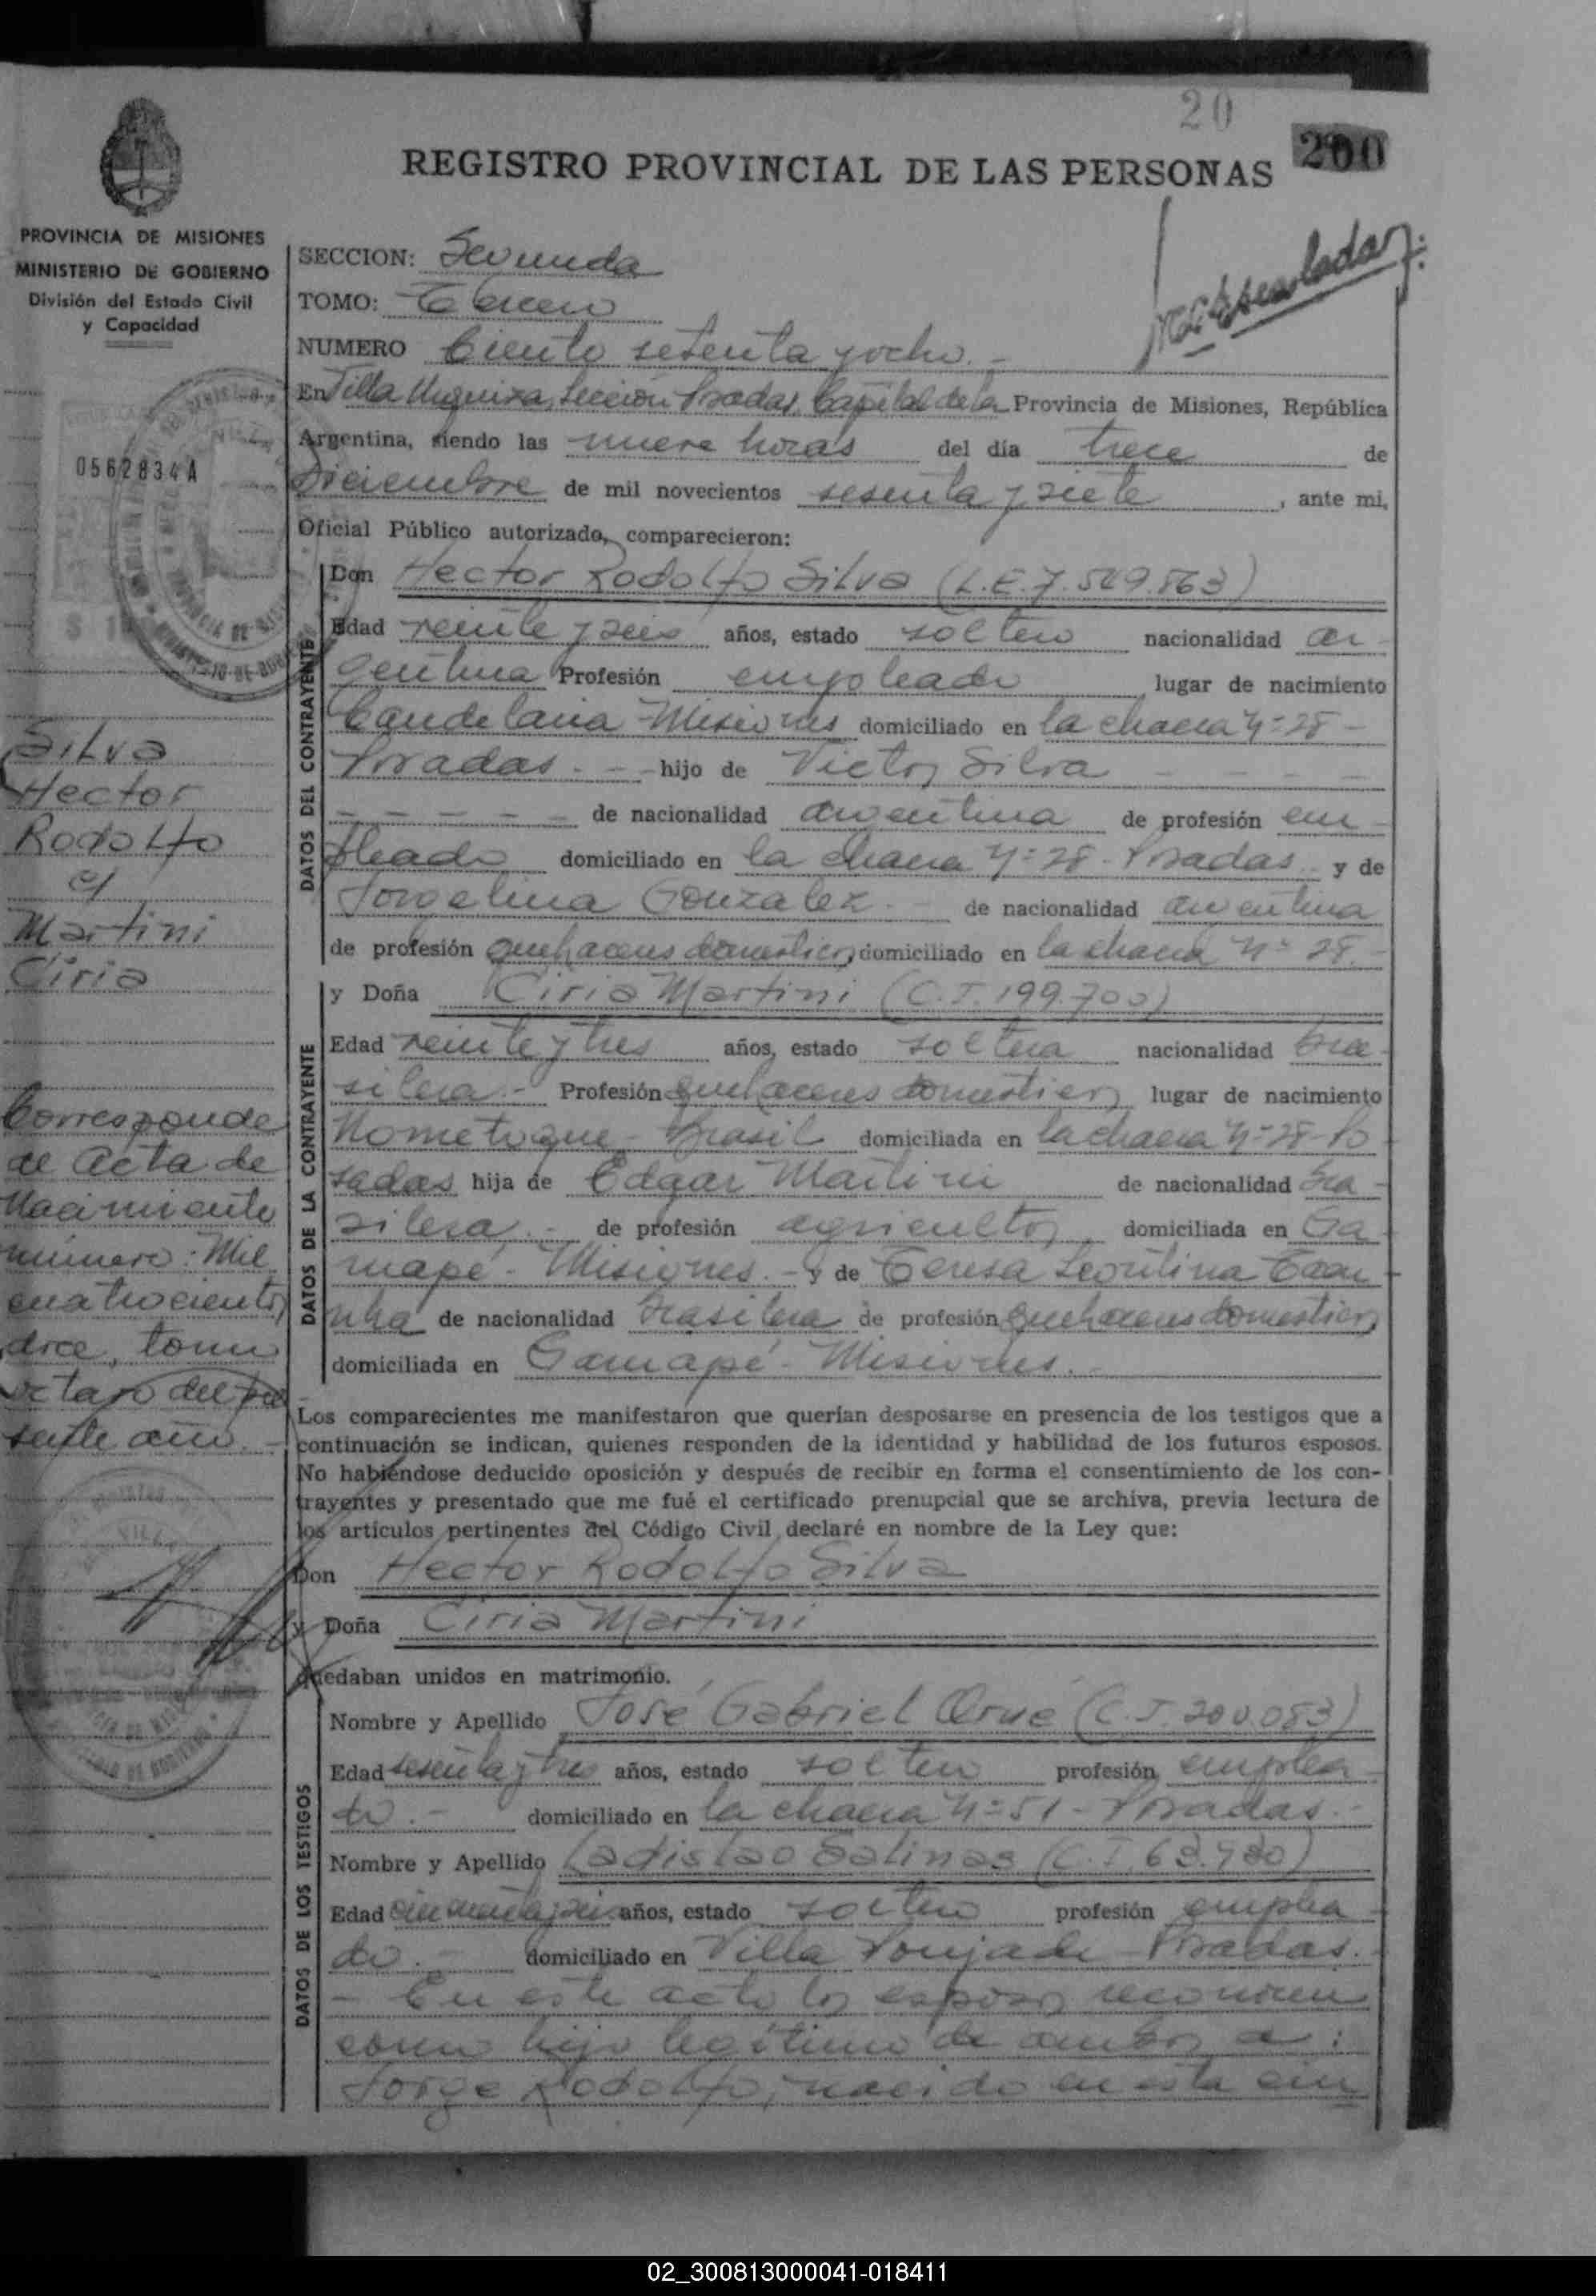 20
200
REGISTRO PROVINCIAL DE LAS PERSONAS
PROVINCIA DE MISIONES
MINISTERIO DE GOBIERNO
División del Estado Civil
y Capacidad
05628344
SECCION: Segunda
TOMO: Tercero
NUMERO Ciento setenta y ocho.-
En Villa Urquiza, Sección Posadas, Capital de la Provincia de Misiones, República
Argentina, siendo las nueve horas del día trece de
Diciembre de mil novecientos sesenta y siete, ante mi,
Oficial Público autorizado, comparecieron:
DATOS DEL CONTRAYENTE
Don Hector Rodolfo Silva (L.E.7.549.863)
Edad veinte y seis años, estado soltero nacionalidad ar-
gentina Profesión empleado lugar de nacimiento
Candelaria - Misiones domiciliado en la chacra Nº 28 -
Posadas. - - - hijo de Victor Silva - - - -
- - - - - de nacionalidad argentina de profesión em-
pleado domiciliado en la chacra Nº 28 - Posadas y de
Jorgelina Gonzalez.- de nacionalidad argentina
de profesión quehaceres domesticos domiciliado en la chacra Nº 28.-
DATOS DE LA CONTRAYENTE
y Doña Ciria Martini (C.I.199.700)
Edad veinte y tres años, estado soltera nacionalidad bra-
silera.- Profesión quehaceres domesticos lugar de nacimiento
Nometoque - Brasil domiciliada en la chacra Nº 28 - Po
sadas hija de Edgar Martini de nacionalidad bra-
silera.- de profesión agricultor domiciliada en Ga-
ruapé - Misiones.- y de Teresa Leontina
de nacionalidad brasilera de profesión quehaceres domesticos
domiciliada en Garuapé - Misiones.-
Los comparecientes me manifestaron que querían desposarse en presencia de los testigos que a
continuación se indican, quienes responden de la identidad y habilidad de los futuros esposos.
No habiéndose deducido oposición y después de recibir en forma el consentimiento de los con-
trayentes y presentado que me fué el certificado prenupcial que se archiva, previa lectura de
los artículos pertinentes del Código Civil declaré en nombre de la Ley que:
Don Hector Rodolfo Silva
y Doña Ciria Martini
quedaban unidos en matrimonio.
DATOS DE LOS TESTIGOS
Nombre y Apellido José Gabriel Orué (C.I.200.083)
Edad sesenta y tres años, estado soltero profesión emplea-
do.- domiciliado en la chacra Nº 51 - Posadas.-
Nombre y Apellido Ladislao Salinas (C.I.63.480)
Edad cincuenta y seis años, estado soltero profesión emplea-
do.- domiciliado en Villa Posadas.-
- En este acto los esposos reconocen
como hijo legítimo de ambos a:
Jorge Rodolfo, nacido en esta ciu
Silva
Hector
Rodolfo
c/
Martini
Ciria
Corresponde
al Acta de
Nacimiento
número: Mil
cuatrocientos
doce, tomo
octavo del pre
sente año.-
02_300813000041-018411